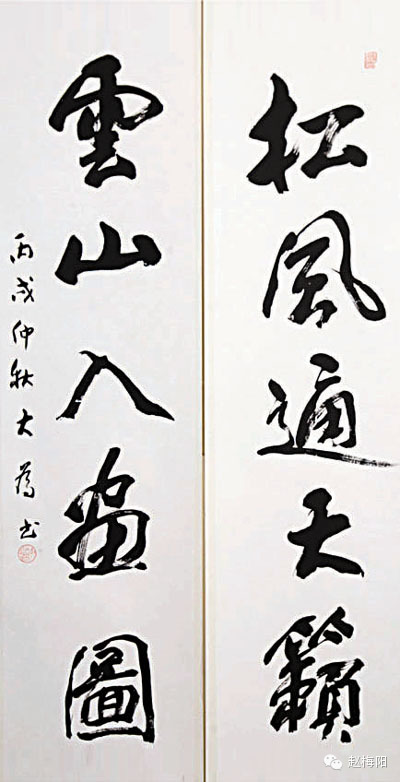 松風通天籟
雲山入畫圖
丙戌仲秋大為书
赵梅阳